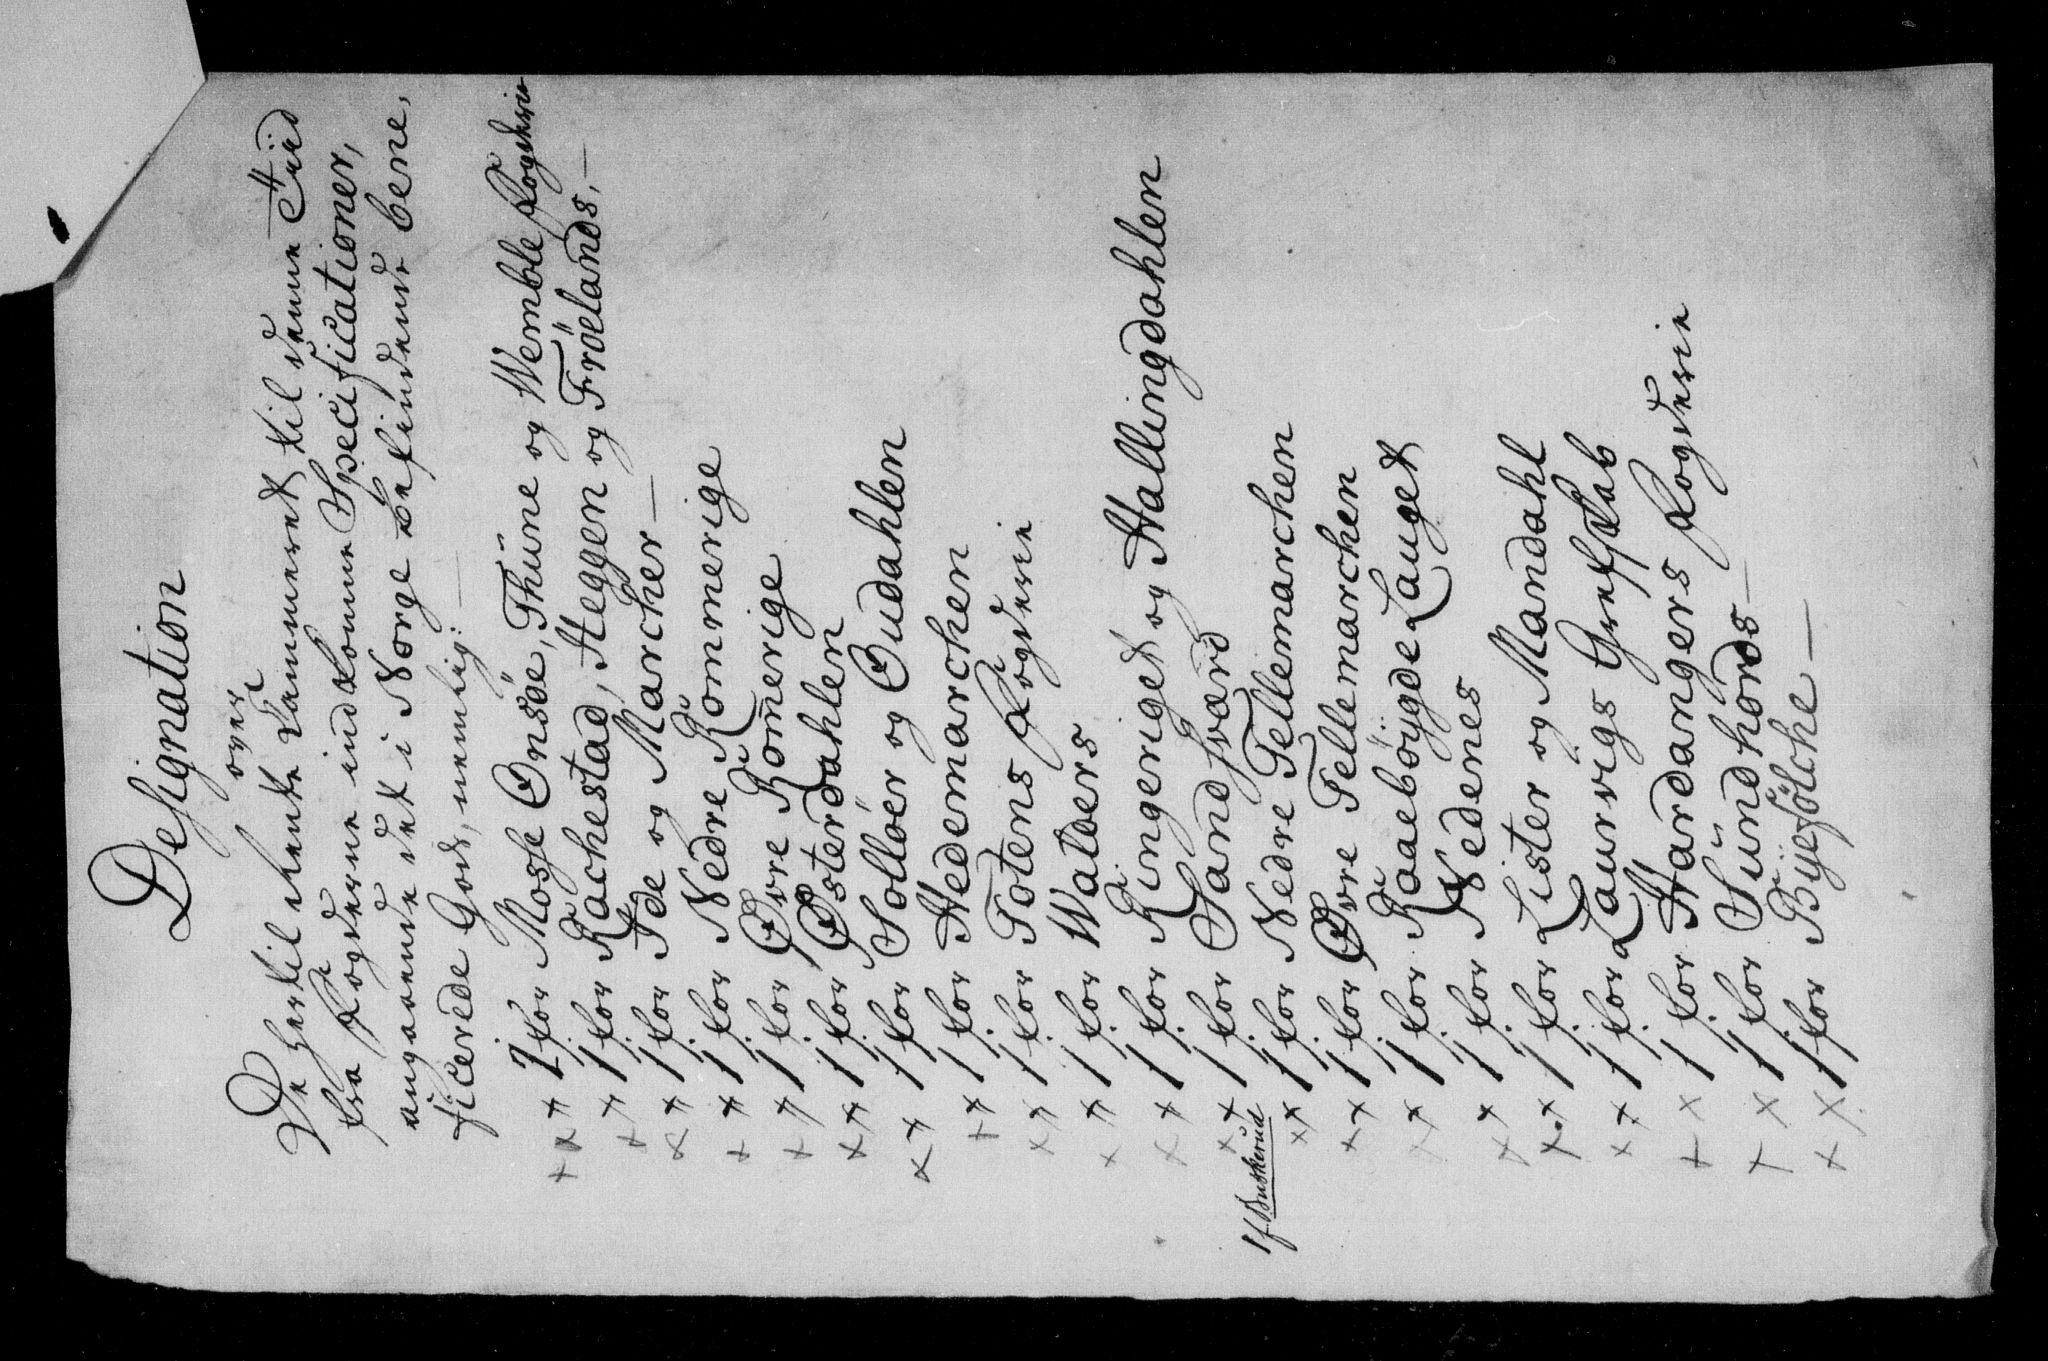 Designation
over
De hertil Rente Cammeret til denne Tiid
fra Fogderne indkomne Specificationer,
angaaende det i Norge befindende bene,
ficerede Gods, nemlig:
1 for Mosse Onsöe, Thüne og Wemble Fogderie
1 for Rachestad, Heggen og Fröelands,—
1 for Ide og Marcher—
1 for Nedre Rommerige
1 for Øvre Romerige
1 for Østerdahlen
1 for Sollöer og Oudahlen
1 for Hedemarchen
1 for Totens Fogderie
1 for Walders
1 for Ringeriget og Hallingdahlen
1 for Sandsværd
1 f Buskerud
1 for Nedre Tellemarchen
1 for Øvre Tellemarchen
1 for Raaeböygde Lauget
1 for Nedenes
1 for Lister og Mandahl
1 for Laurvigs Grefskab
1 for Hardangers Fogderie
1 for Sündhords—
1 for Ryefölche—